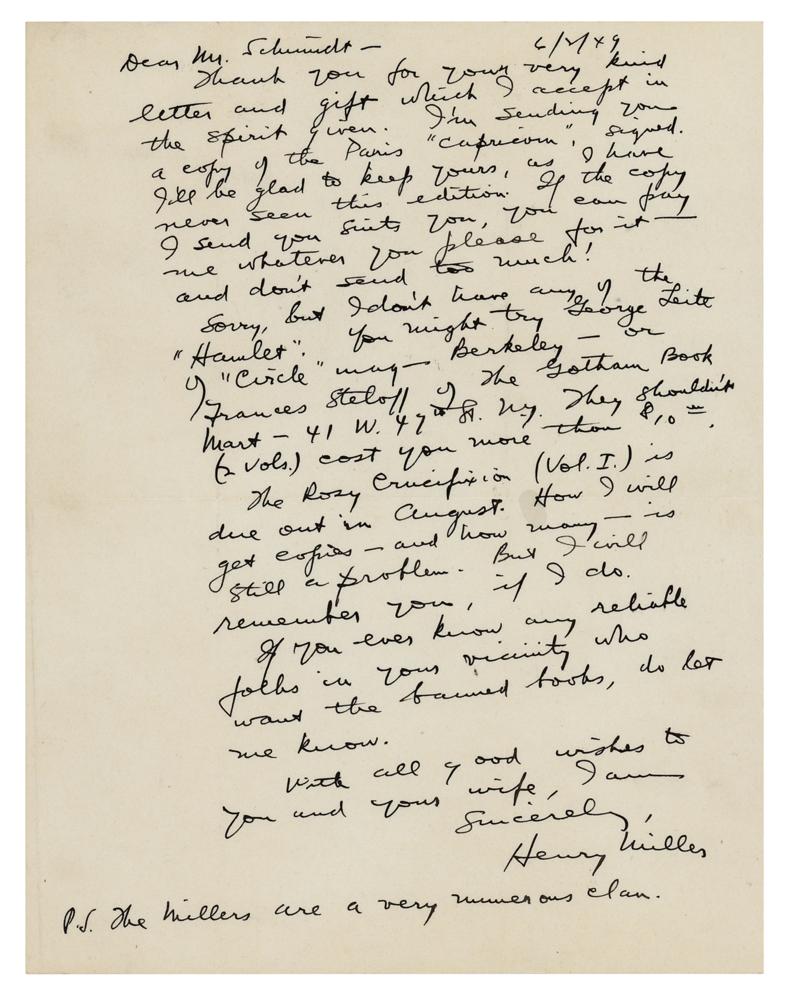 6/2/49
Dear Mr. Schmidt —
Thank you for your very kind
letter and gift which I accept in
the spirit given. I'm sending you
a copy of the Paris "Capricorn", signed.
I'll be glad to keep yours, as I have
never seen this edition. If the copy
I send you suits you, you can pay
me whatever you please for it —
and don't send too much!
Sorry, but I don't have any of the
"Hamlet". You might try George Leite
of "Circle" mag — Berkeley — or
Frances Steloff of The Gotham Book
Mart — 41 W. 47th St. N.Y. They shouldn't
(2 vols.) cost you more than $10 00.
The Rosy Crucifixion (Vol. I.) is
due out in August. How I will
get copies — and how many — is
still a problem. But I will
remember you, if I do.
If you ever know any reliable
folks in your vicinity who
want the banned books, do let
me know.
With all good wishes to
you and your wife, I am
Sincerely,
Henry Miller
P.S. The Millers are a very numerous clan.